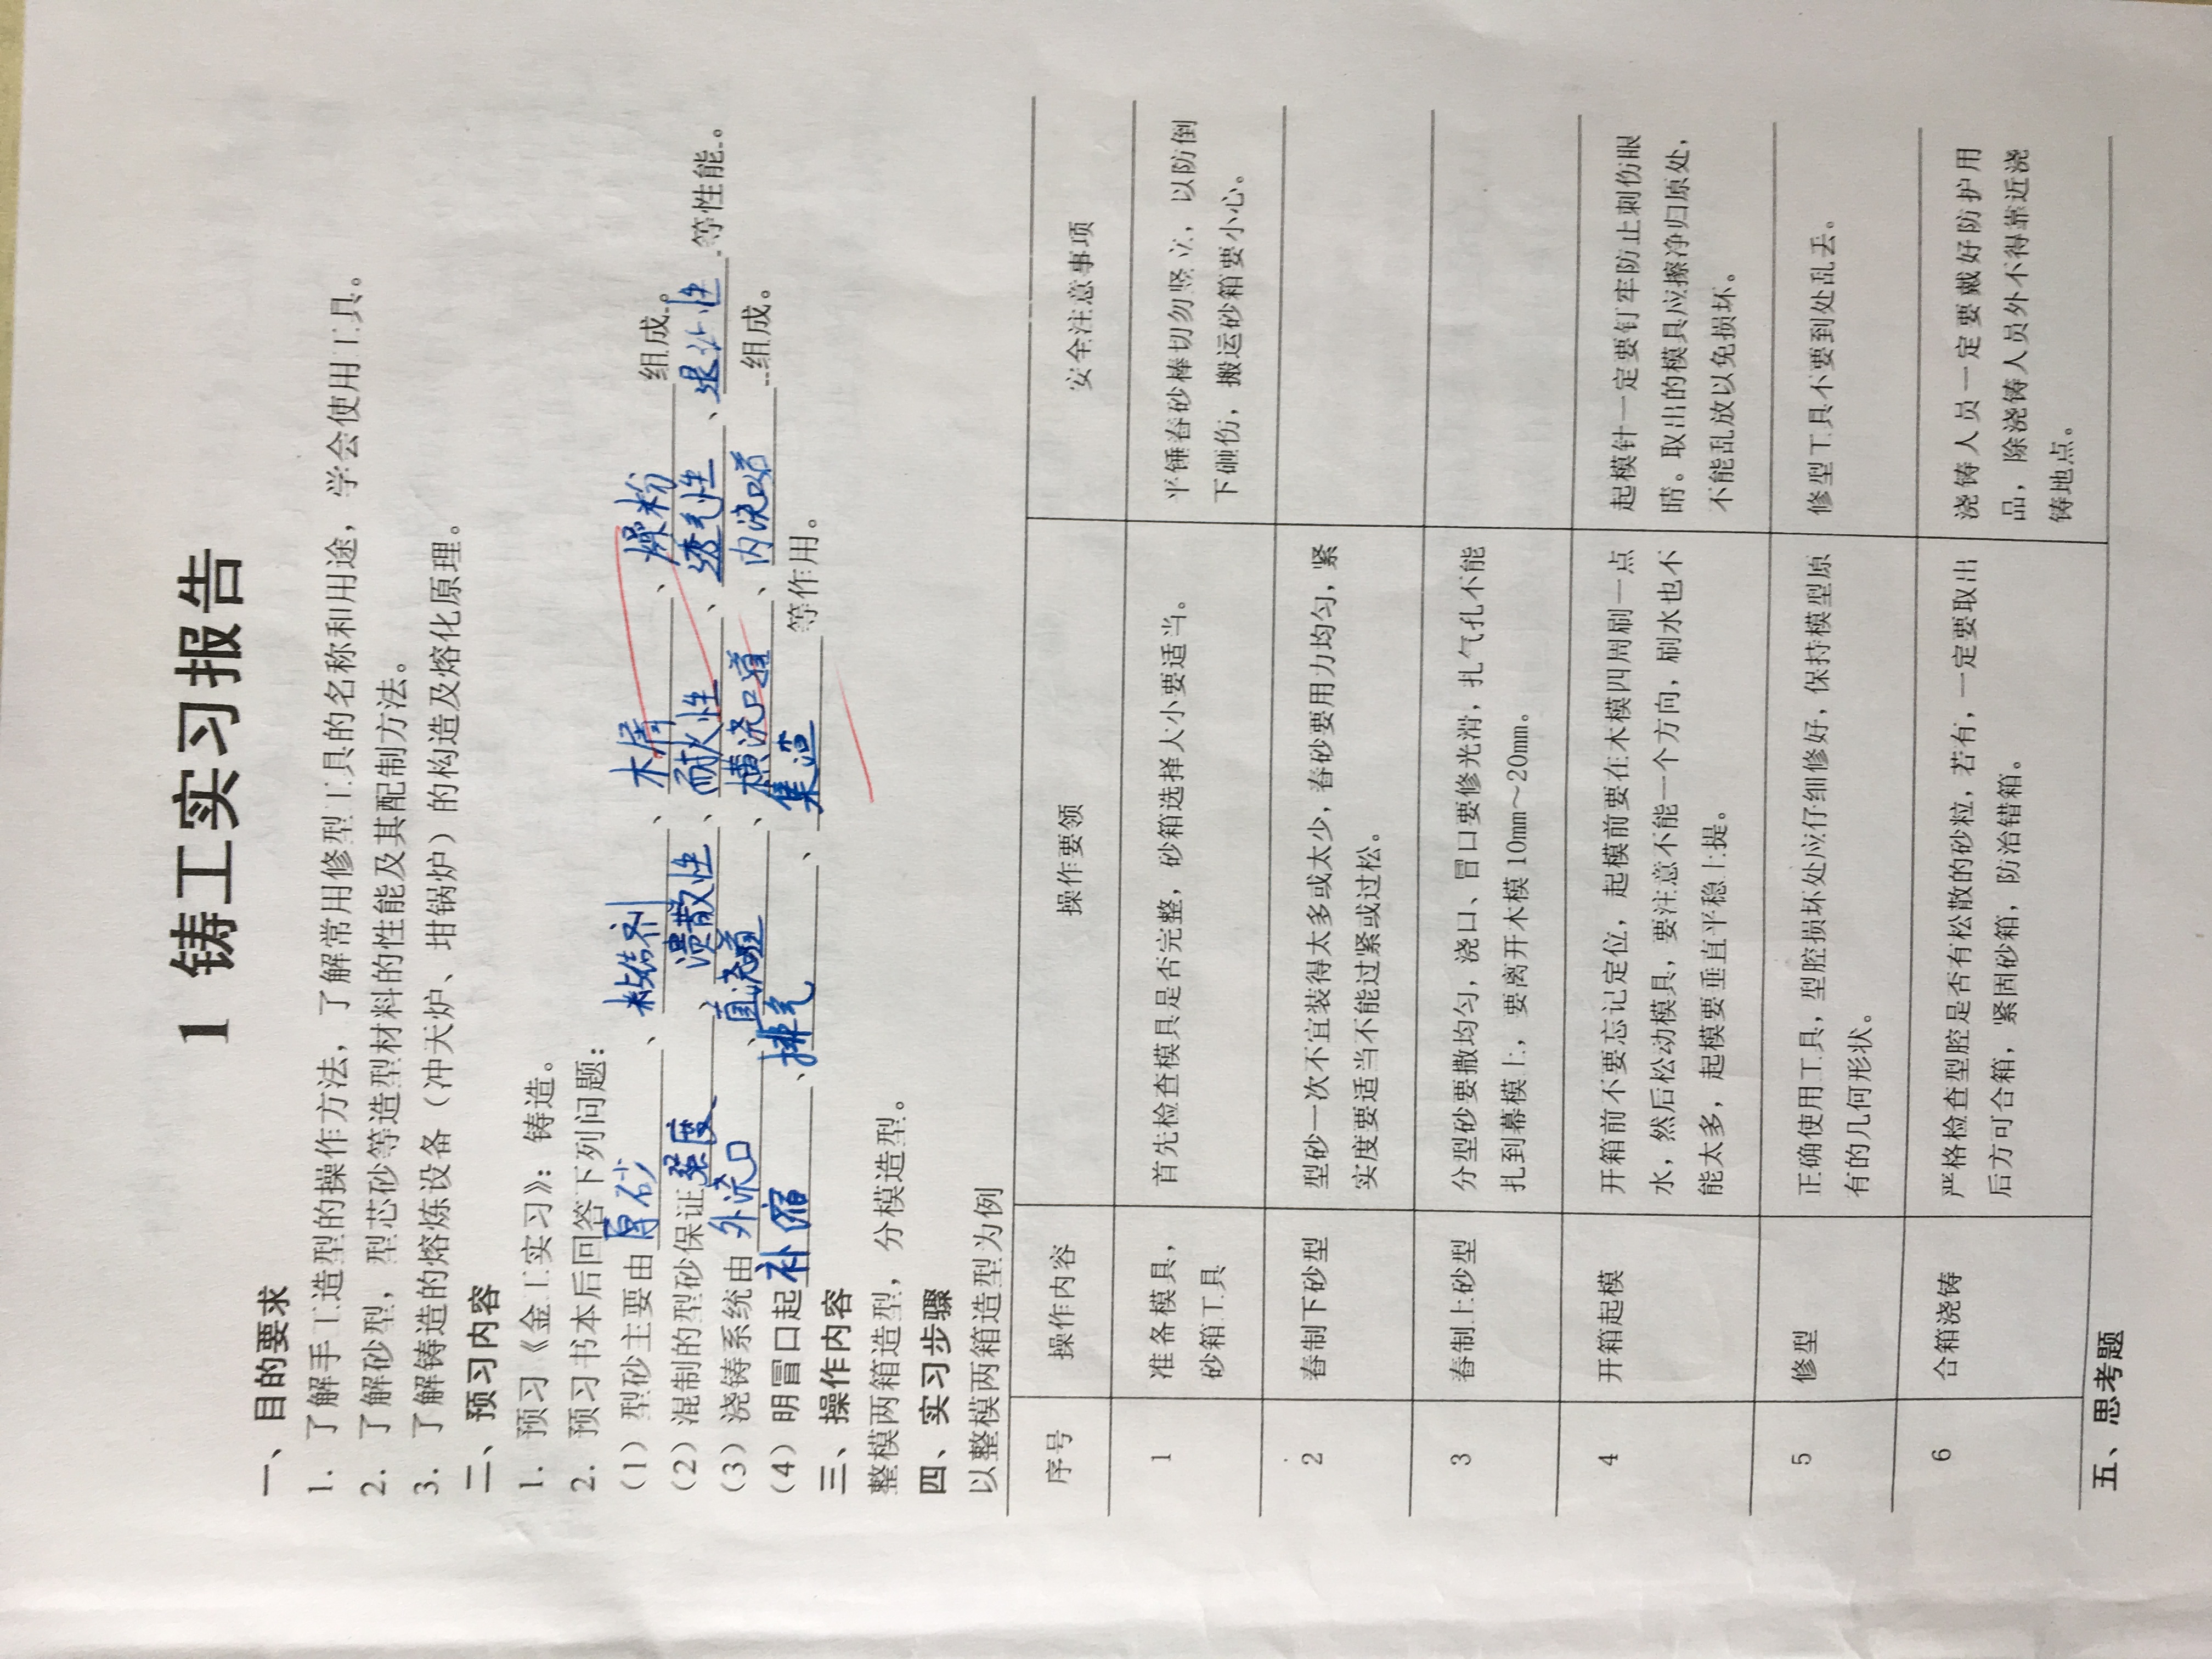 1 铸工实习报告
一、目的要求
1. 了解手工造型的操作方法，了解常用修型工具的名称和用途，学会使用工具。
2. 了解砂型，型芯砂等造型材料的性能及其配制方法。
3. 了解铸造的熔炼设备（冲天炉、坩锅炉）的构造及熔化原理。
二、预习内容
1. 预习《金工实习》：铸造。
2. 预习书本后回答下列问题：
（1）型砂主要由 原砂 、 粘结剂 、 木屑 、 煤粉 组成。
（2）混制的型砂保证 强度 、 溃散性 、 耐火性 、 透气性 、 退让性 等性能。
（3）浇铸系统由 外浇口 、 直浇道 、 横浇口道 、 内浇道 组成。
（4）明冒口起 补缩 、 排气 、 集渣 等作用。
三、操作内容
整模两箱造型，分模造型。
四、实习步骤
以整模两箱造型为例
序号 操作内容 操作要领 安全注意事项
1 准备模具， 首先检查模具是否完整，砂箱选择大小要适当。 平锤舂砂棒切勿竖立，以防倒
砂箱工具 下砸伤，搬运砂箱要小心。
2 舂制下砂型 型砂一次不宜装得太多或太少，舂砂要用力均匀，紧
实度要适当不能过紧或过松。
3 舂制上砂型 分型砂要撒均匀，浇口、冒口要修光滑，扎气孔不能
扎到幕模上，要离开木模10mm～20mm。
4 开箱起模 开箱前不要忘记定位，起模前要在木模四周刷一点 起模针一定要钉牢防止刺伤眼
水，然后松动模具，要注意不能一个方向，刷水也不 睛。取出的模具应擦净归原处，
能太多，起模要垂直平稳上提。 不能乱放以免损坏。
5 修型 正确使用工具，型腔损坏处应仔细修好，保持模型原 修型工具不要到处乱丢。
有的几何形状。
6 合箱浇铸 严格检查型腔是否有松散的砂粒，若有，一定要取出 浇铸人员一定要戴好防护用
后方可合箱，紧固砂箱，防治错箱。 品，除浇铸人员外不得靠近浇
铸地点。
五、思考题